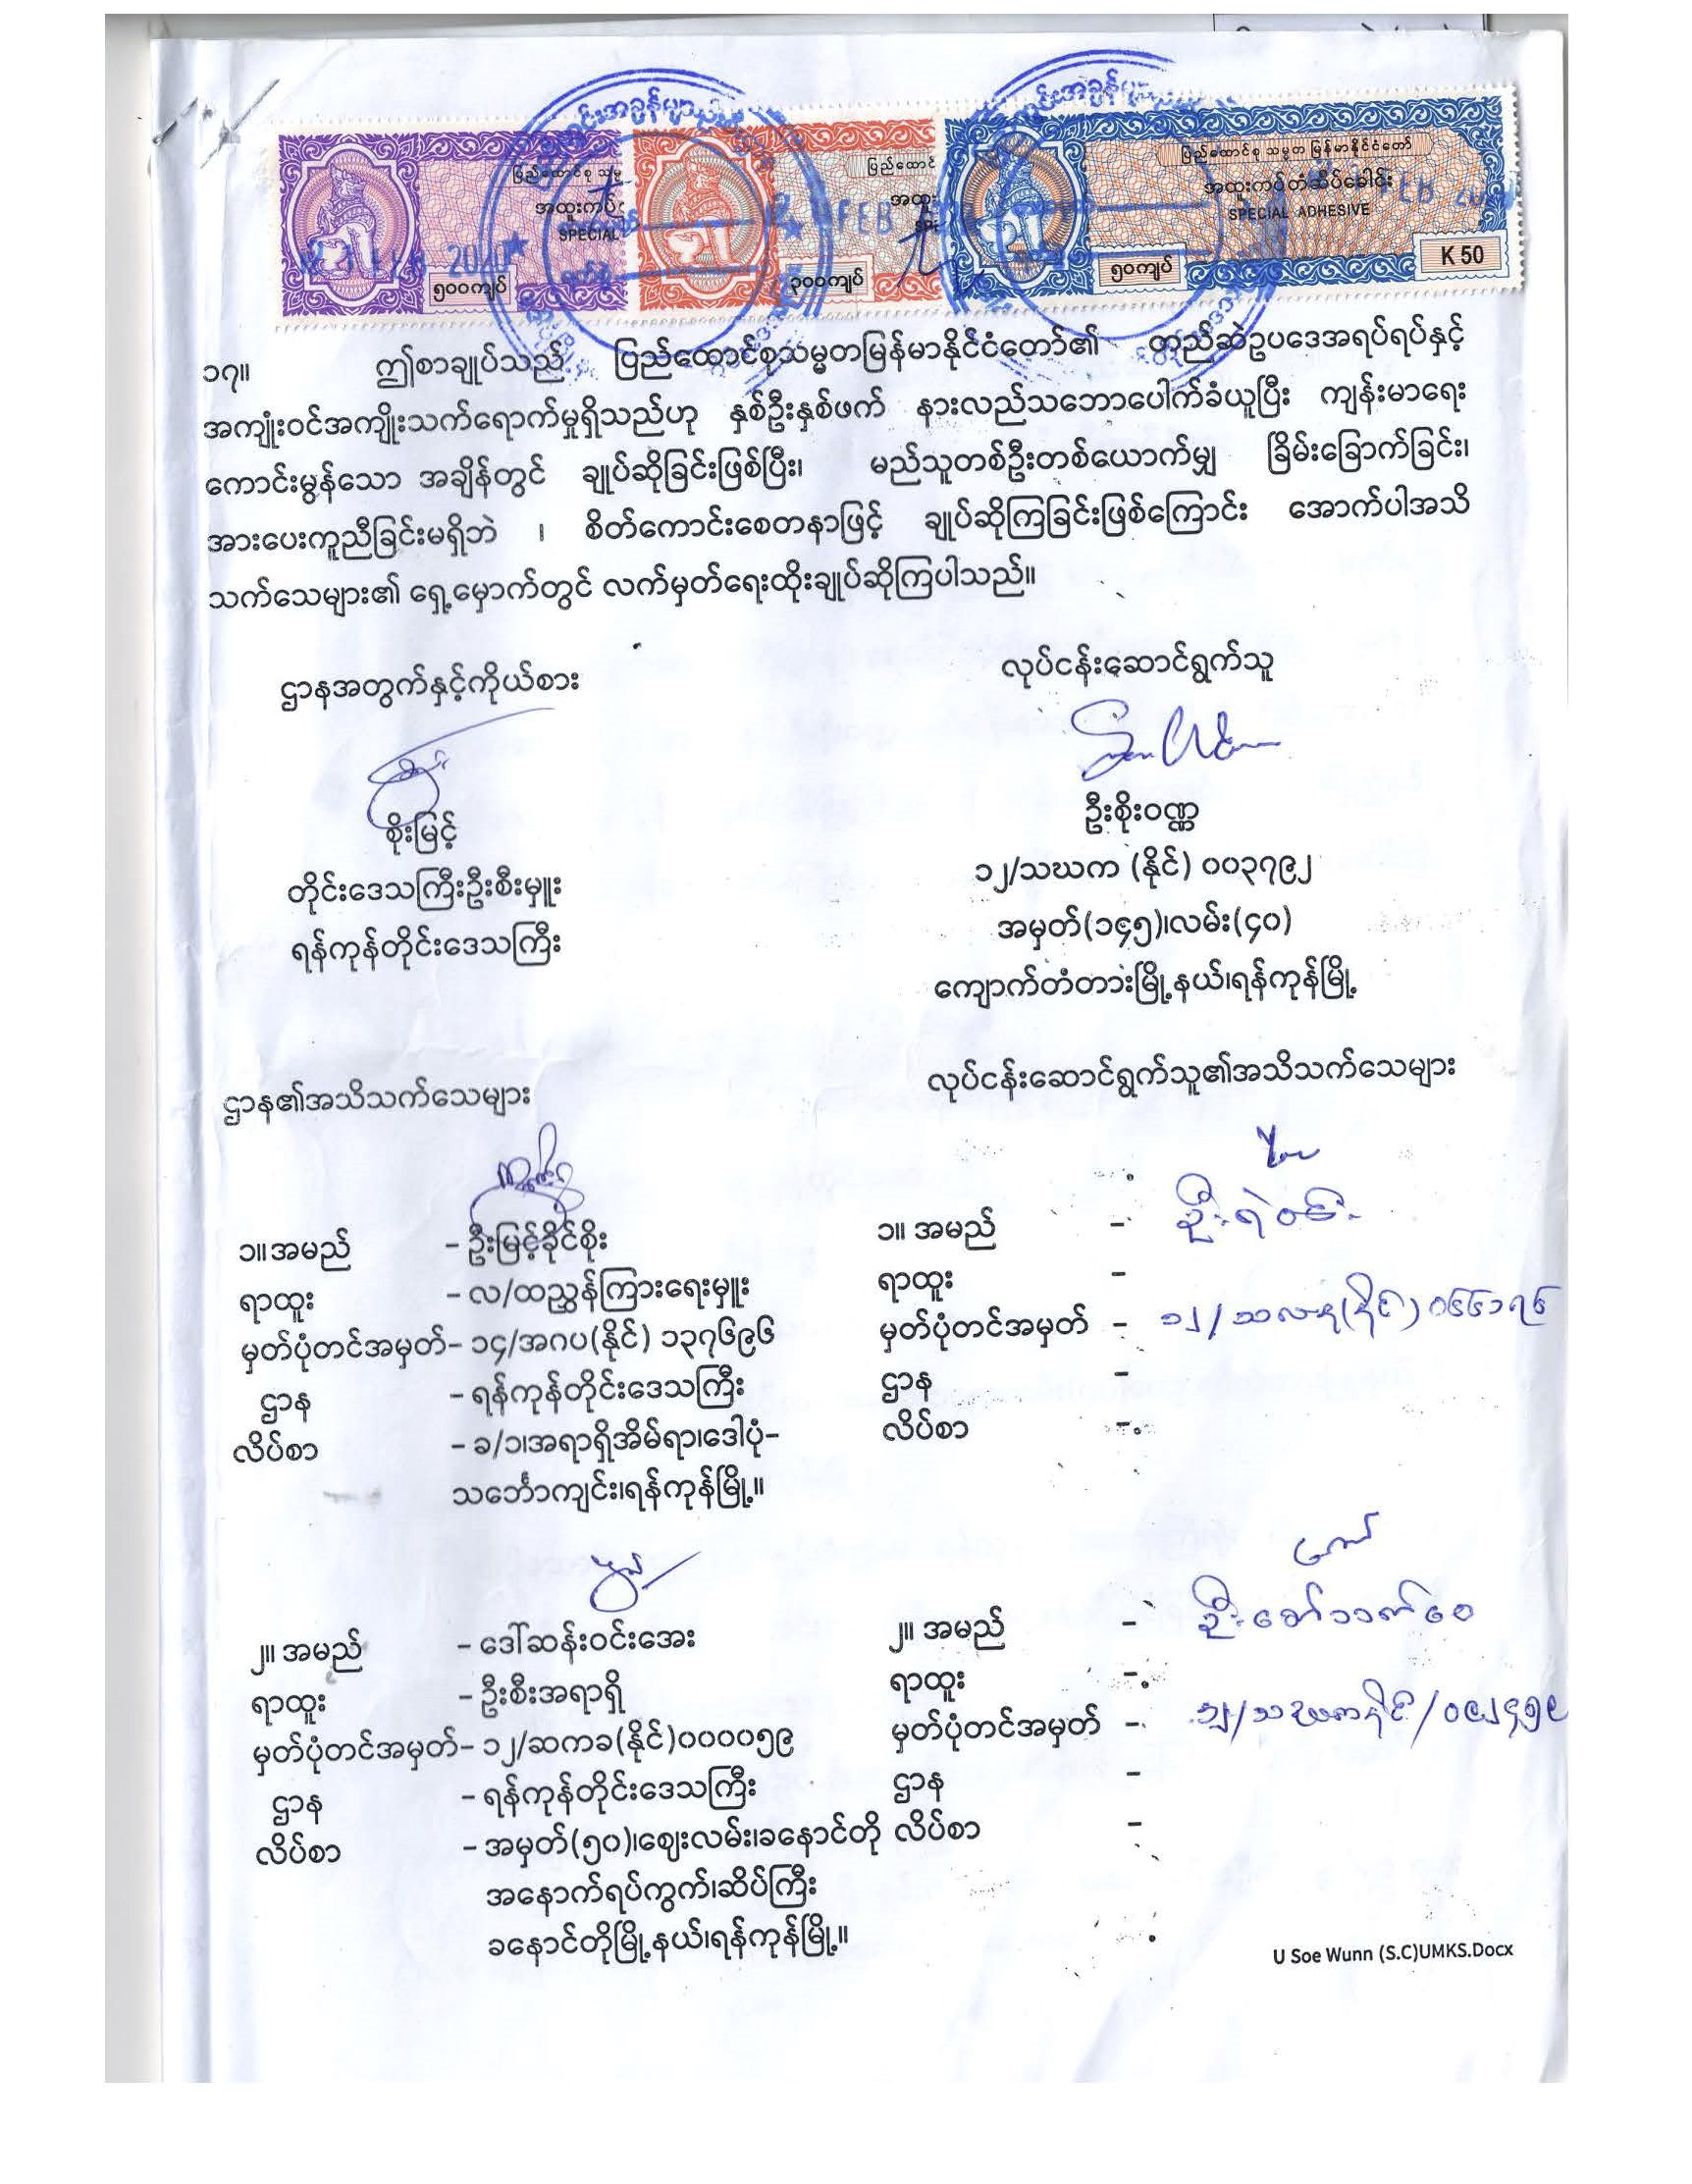 ပြည်ထောင်စု သမ္မတ မြန်မာနိုင်ငံတော်
အထူးကပ်တံဆိပ်ခေါင်း
SPECIAL ADHESIVE
၅၀၀ကျပ်
၃၀၀ကျပ်
၅၀ကျပ်
K 50
၁၇။ ဤစာချုပ်သည် ပြည်ထောင်စုသမ္မတမြန်မာနိုင်ငံတော်၏ တည်ဆဲဥပဒေအရပ်ရပ်နှင့်
အကျုံးဝင်အကျိုးသက်ရောက်မှုရှိသည်ဟု နှစ်ဦးနှစ်ဖက် နားလည်သဘောပေါက်ခံယူပြီး ကျန်းမာရေး
ကောင်းမွန်သော အချိန်တွင် ချုပ်ဆိုခြင်းဖြစ်ပြီး၊ မည်သူတစ်ဦးတစ်ယောက်မျှ ခြိမ်းခြောက်ခြင်း၊
အားပေးကူညီခြင်းမရှိဘဲ ၊ စိတ်ကောင်းစေတနာဖြင့် ချုပ်ဆိုကြခြင်းဖြစ်ကြောင်း အောက်ပါအသိ
သက်သေများ၏ ရှေ့မှောက်တွင် လက်မှတ်ရေးထိုးချုပ်ဆိုကြပါသည်။
ဌာနအတွက်နှင့်ကိုယ်စား
စိုးမြင့်
တိုင်းဒေသကြီးဦးစီးမှူး
ရန်ကုန်တိုင်းဒေသကြီး
လုပ်ငန်းဆောင်ရွက်သူ
ဦးစိုးဝဏ္ဏ
၁၂/သဃက (နိုင်) ၀၀၃၇၉၂
အမှတ်(၁၄၅)၊လမ်း(၄၀)
ကျောက်တံတားမြို့နယ်၊ရန်ကုန်မြို့
ဌာန၏အသိသက်သေများ
၁။ အမည် - ဦးမြင့်ခိုင်စိုး
ရာထူး - လ/ထညွှန်ကြားရေးမှူး
မှတ်ပုံတင်အမှတ်- ၁၄/အဂပ(နိုင်) ၁၃၇၆၉၆
ဌာန - ရန်ကုန်တိုင်းဒေသကြီး
လိပ်စာ - ခ/၁၊အရာရှိအိမ်ရာ၊ဒေါပုံ-
သင်္ဘောကျင်း၊ရန်ကုန်မြို့။
၂။ အမည် - ဒေါ်ဆန်းဝင်းအေး
ရာထူး - ဦးစီးအရာရှိ
မှတ်ပုံတင်အမှတ်- ၁၂/ဆကခ(နိုင်)၀၀၀၀၅၉
ဌာန - ရန်ကုန်တိုင်းဒေသကြီး
လိပ်စာ - အမှတ်(၅၀)၊ဈေးလမ်း၊ခနောင်တို
အနောက်ရပ်ကွက်၊ဆိပ်ကြီး
ခနောင်တိုမြို့နယ်၊ရန်ကုန်မြို့။
လုပ်ငန်းဆောင်ရွက်သူ၏အသိသက်သေများ
၁။ အမည် - ဦးရဲဝင်း
ရာထူး -
မှတ်ပုံတင်အမှတ် -
ဌာန -
လိပ်စာ -
၂။ အမည် -
ရာထူး -
မှတ်ပုံတင်အမှတ် -
ဌာန -
လိပ်စာ -
U Soe Wunn (S.C)UMKS.Docx